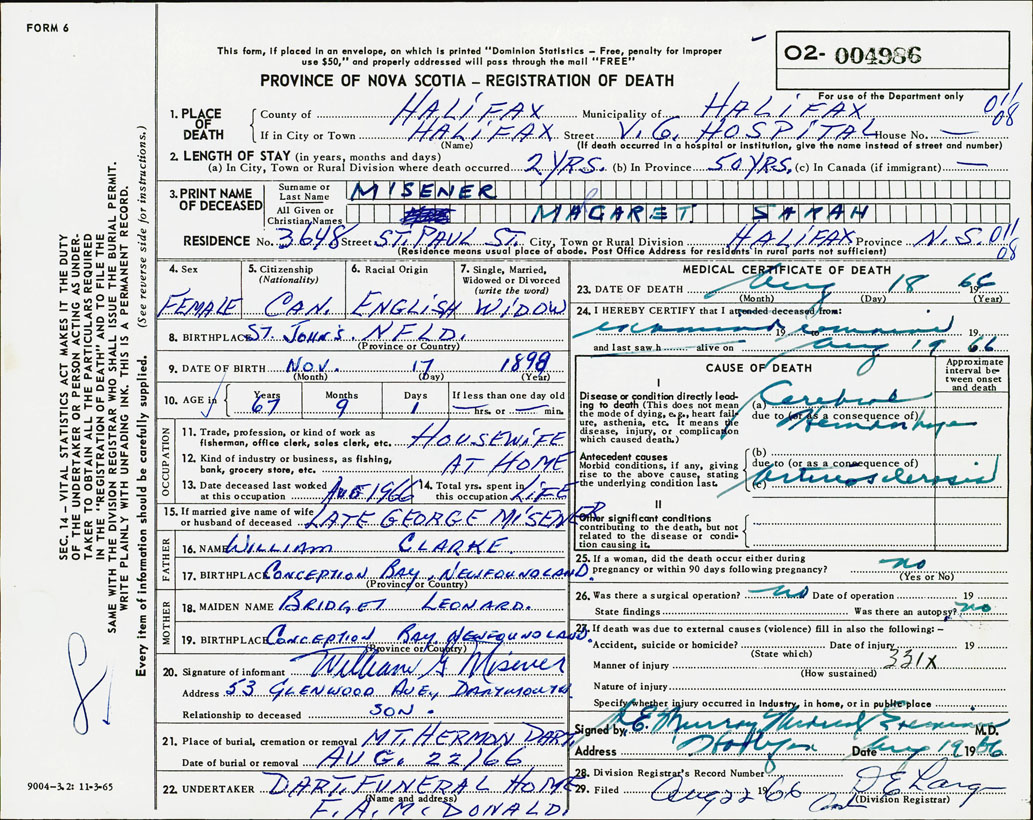 FORM 6
This form, if placed in an envelope, on which is printed "Dominion Statistics – Free, penalty for improper
use $50," and properly addressed will pass through the mail "FREE"
PROVINCE OF NOVA SCOTIA – REGISTRATION OF DEATH
02- 004986
For use of the Department only
011
08
1. PLACE OF DEATH
County of HALIFAX Municipality of HALIFAX
If in City or Town HALIFAX Street V.G. HOSPITAL House No. —
(Name) (If death occurred in a hospital or institution, give the name instead of street and number)
2. LENGTH OF STAY (in years, months and days)
(a) In City, Town or Rural Division where death occurred 2 YRS. (b) In Province 50 YRS. (c) In Canada (if immigrant) —
3. PRINT NAME OF DECEASED
Surname or Last Name MISENER
All Given or Christian Names MAGARET SARAH
RESIDENCE No. 3648 Street ST. PAUL ST. City, Town or Rural Division HALIFAX Province N.S. 011
08
(Residence means usual place of abode. Post Office Address for residents in rural parts not sufficient)
4. Sex FEMALE
5. Citizenship (Nationality) CAN.
6. Racial Origin ENGLISH
7. Single, Married, Widowed or Divorced (write the word) WIDOW
8. BIRTHPLACE ST. JOHN'S NFLD.
(Province or Country)
9. DATE OF BIRTH NOV. 17 1898
(Month) (Day) (Year)
10. AGE in Years 67 Months 9 Days 1 If less than one day old — hrs. or — min.
OCCUPATION
11. Trade, profession, or kind of work as
fisherman, office clerk, sales clerk, etc. HOUSEWIFE
12. Kind of industry or business, as fishing,
bank, grocery store, etc. AT HOME
13. Date deceased last worked at this occupation AUG 1966 14. Total yrs. spent in this occupation LIFE
15. If married give name of wife
or husband of deceased LATE GEORGE MISENER
FATHER
16. NAME WILLIAM CLARKE.
17. BIRTHPLACE CONCEPTION BAY, NEWFOUNDLAND.
(Province or Country)
MOTHER
18. MAIDEN NAME BRIDGET LEONARD.
19. BIRTHPLACE CONCEPTION BAY, NEWFOUNDLAND.
(Province or Country)
20. Signature of informant William G Misener
Address 53 GLENWOOD AVE, DARTMOUTH
Relationship to deceased SON.
21. Place of burial, cremation or removal MT. HERMON DART.
Date of burial or removal AUG. 22/66
22. UNDERTAKER DART. FUNERAL HOME
(Name and address)
F. A. McDONALD.
MEDICAL CERTIFICATE OF DEATH
23. DATE OF DEATH Aug 18 1966
(Month) (Day) (Year)
24. I HEREBY CERTIFY that I attended deceased from:
19 19
and last saw h alive on Aug 19 1966
CAUSE OF DEATH
Approximate interval between onset and death
I
Disease or condition directly leading to death (This does not mean
the mode of dying, e.g., heart failure, asthenia, etc. It means the
disease, injury, or complication which caused death.)
(a) Cerebral
due to (or as a consequence of)
Hemorrhage
Antecedent causes
Morbid conditions, if any, giving
rise to the above cause, stating
the underlying condition last.
(b)
due to (or as a consequence of)
(c) Arteriosclerosis
II
Other significant conditions
contributing to the death, but not
related to the disease or condition causing it.
25. If a woman, did the death occur either during
pregnancy or within 90 days following pregnancy? no
(Yes or No)
26. Was there a surgical operation? no Date of operation 19
State findings Was there an autopsy? no
27. If death was due to external causes (violence) fill in also the following: –
Accident, suicide or homicide? Date of injury 19
(State which)
Manner of injury 331X
(How sustained)
Nature of injury
Specify whether injury occurred in industry, in home, or in public place
Signed by E. Murray Medical Examiner M.D.
Address Halifax Date Aug 19 1966
28. Division Registrar's Record Number
29. Filed Aug 22 1966
(Division Registrar)
SEC. 14 – VITAL STATISTICS ACT MAKES IT THE DUTY
OF THE UNDERTAKER OR PERSON ACTING AS UNDER-
TAKER TO OBTAIN ALL THE PARTICULARS REQUIRED
IN THE "REGISTRATION OF DEATH" AND TO FILE THE
SAME WITH THE DIVISION REGISTRAR WHO SHALL ISSUE THE BURIAL PERMIT.
WRITE PLAINLY WITH UNFADING INK. THIS IS A PERMANENT RECORD.
Every item of information should be carefully supplied. (See reverse side for instructions.)
9004-3.2: 11-3-65